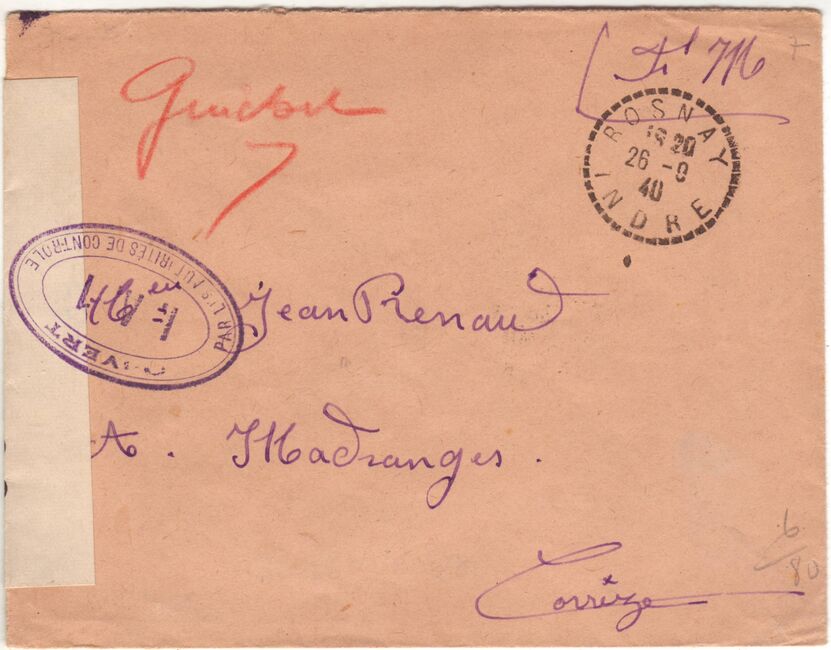 Fd M
7
ROSNAY
INDRE
18 20
26 -9
40
7
OUVERT
PAR LES AUTORITÉS DE CONTROLE
Jean Renaud
A. Madranges.
Corrèze
6
80